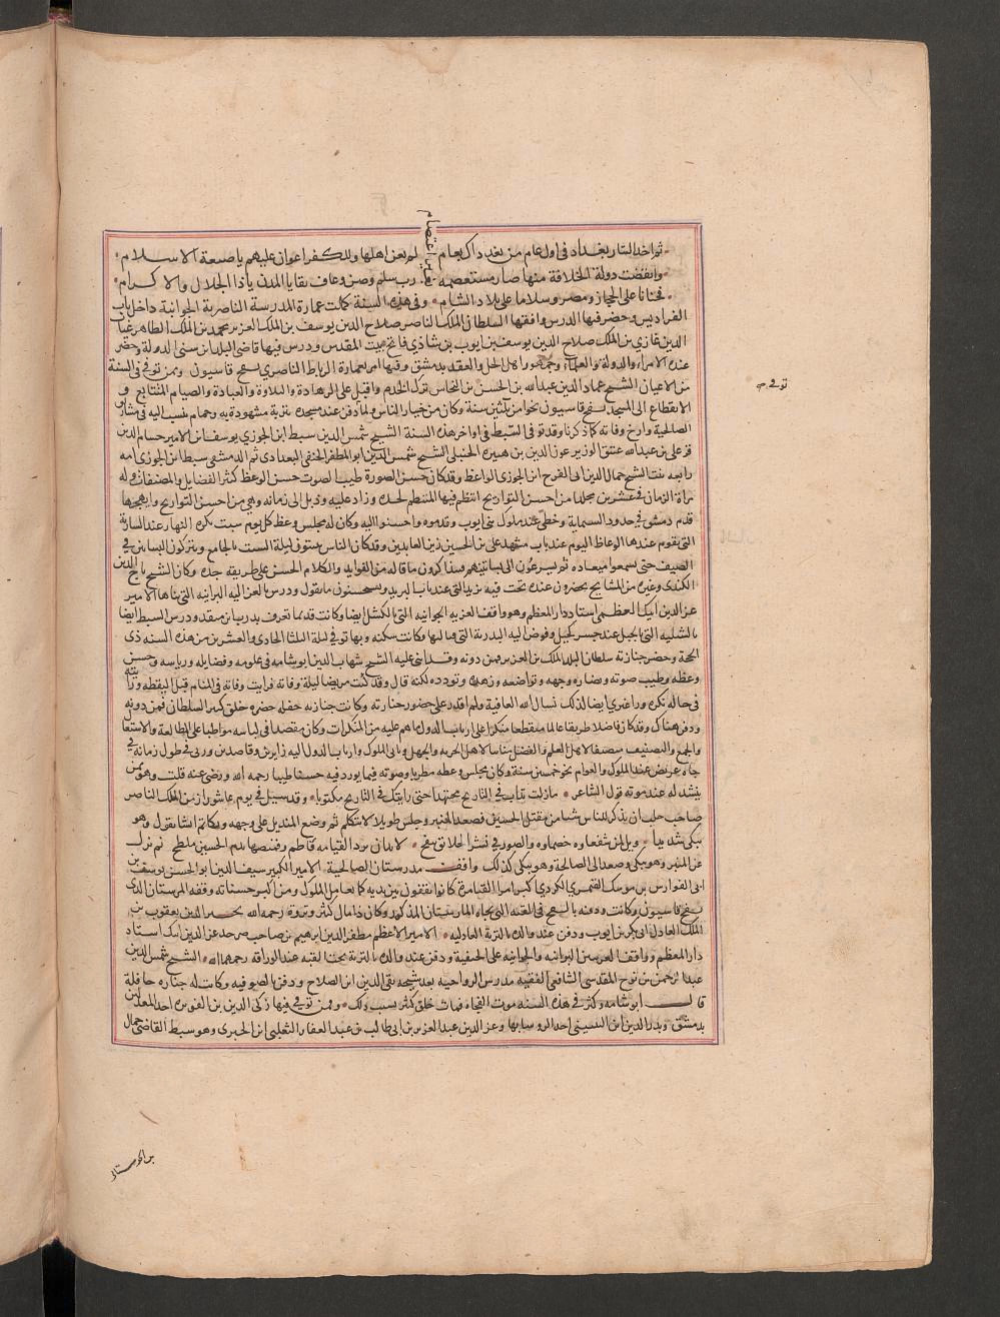 ثم اخذ التتار بغداد في اول عام من بعد ذاك بعام
لم يعن اهلها وللكفر اعوان عليهم يا ضيعة الاسلام
وانقضت دولة الخلافة منها صار مستعصم بغير اعتصام
رب سلم وصن وعاف بقايا المدن ياذا الجلال والاكرام
فحنانا على الحجاز ومصر وسلاما على بلاد الشام وفي هذه السنة كملت عمارة المدرسة الناصرية الجوانية داخل باب
الفراديس وحضر فيها الدرس واقفها السلطان الملك الناصر صلاح الدين يوسف بن الملك العزيز محمد بن الملك الظاهر غياث
الدين غازي بن الملك صلاح الدين يوسف بن ايوب بن شاذي فاتح بيت المقدس ودرس فيها قاضي البلد ابن سني الدولة وحضر
عنده الامراء والدولة والعلماء وجمهور اهل الحل والعقد بدمشق وفيها امر بعمارة الرباط الناصري بسفح قاسيون وممن توفي في السنة
من الاعيان الشيخ عماد الدين عبد الله بن الحسن بن النحاس ترك الخدم واقبل على الزهادة والتلاوة والعبادة والصيام المتتابع و
الانقطاع الى المسجد بسفح قاسيون نحوا من ثلثين سنة وكان من خيار الناس ولما مات دفن عند مسجده بتربة مشهودة به وحمام ينسب اليه في مشارق
الصالحية وارخ وفاته كما ذكرنا وقد توفي السبط في اواخر هذه السنة الشيخ شمس الدين سبط ابن الجوزي يوسف ابن الامير حسام الدين
قزعلي بن عبد الله عتيق الوزير عون الدين بن هبيرة الحنبلي الشيخ شمس الدين ابو المظفر الحنفي البغدادي ثم الدمشقي سبط ابن الجوزي امه
رابعه بنت الشيخ جمال الدين ابي الفرج ابن الجوزي الواعظ وقد كان حسن الصورة طيب الصوت حسن الوعظ كثير الفضايل والمصنفات وله
مراة الزمان في عشرين مجلدا من احسن التواريخ انتظم فيها المنتظم لجده وزاد عليه وذيل الى زمانه وهي من احسن التواريخ وابهجها
قدم دمشق في حدود الستماية وحظي عند ملوك بني ايوب وقدموه واحسنوا اليه وكان له مجلس وعظ كل يوم سبت بكرة النهار عند السارية
التي يقوم عندها الوعاظ اليوم عند باب مشهد علي بن الحسين زين العابدين وقد كان الناس يبيتون ليلة السبت بالجامع ويتركون البساتين في
الصيف حتى يسمعوا ميعاده ثم يسرعون الى بساتينهم فيتذاكرون ما قاله من الفوايد والكلام الحسن على طريقه جده وكان الشيخ تاج الدين
الكندي وغيره من المشايخ يحضرون عنده تحت قبة يزيد التي عند باب البريد ويستحسنون ما يقول ودرس بالعزية البرانيه التي بناها الامير
عز الدين ايبك المعظمي استاد دار المعظم وهو واقف العزيه الجوانيه التي بالكشك ايضا وكانت قديما تعرف بدور ابن منقذ ودرس السبط ايضا
بالشبليه التي بالجبل عند جسر كحيل وفوض اليه البدرية التي قبالها فكانت سكنه وبها توفي ليلة الثلثا الحادي والعشرين من هذه السنه ذي
الحجة وحضر جنازته سلطان البلد الملك بن العزيز فمن دونه وقد اثنى عليه الشيخ شهاب الدين ابو شامه في علومه وفضايله ورياسه وحسن
وعظه وطيب صوته ونضارة وجهه وتواضعه وزهده وتودده لكنه قال وقد كنت مريضا ليلة وفاته فرايت وفاته في المنام قبل اليقظه ورايته
في حالة منكرة وراه غيري ايضا كذلك نسال الله العافية ولم اقدر على حضور جنازته وكانت جنازته حفله حضره خلق كثير السلطان فمن دونه
ودفن هناك وقد كان فاضلا ظريفا عالما منقطعا منكرا على ارباب الدول ما هم عليه من المنكرات وكان مقتصدا في لباسه مواظبا على المطالعة والاشتغال
والجمع والتصنيف منصفا لاهل العلم والفضل مباينا لاهل الخزيه والجهل وتاتي الملوك وارباب الدول اليه زايرين وقاصدين وربي في طول زمانه في
جاه عريض عند الملوك والعوام نحو خمسين سنة وكان مجلس وعظه مطربا وصوته فيما يورد فيه حسنا طيبا رحمه الله ورضي عنه قلت وهو ممن
ينشد له عند موته قول الشاعر ما زلت تداب في التاريخ مجتهدا حتى رايتك في التاريخ مكتوبا وقد سيل في يوم عاشورا زمن الملك الناصر
صاحب حلب ان يذكر للناس شيا من مقتل الحسين فصعد المنبر وجلس طويلا لا يتكلم ثم وضع المنديل على وجهه وبكا ثم انشا يقول وهو
يبكي شديدا ويل لمن شفعاوه خصماوه والصور في نشر الخلائق ينفخ لا بد ان ترد القيامه فاطم وقميصها بدم الحسين ملطخ ثم نزل
عن المنبر وهو يبكي وصعد الى الصالحية وهو يبكي كذلك واقف مدرستان الصالحية الامير الكبير سيف الدين ابو الحسن يوسف بن
ابي الفوارس بن موسك القيمري الكردي اكبر امرا القيامرة كانوا يقفون بين يديه كما يعامل الملوك ومن اكبر حسناته وقفه المرستان الذي
بسفح قاسيون وكانت ودفنه بالسفح في القبه التي تجاه المارستان المذكور وكان ذا مال كثير وثروة رحمه الله مجير الدين يعقوب بن
الملك العادل ابي بكر بن ايوب ودفن عند والده بالتربة العادليه الامير الاعظم مظفر الدين ابرهيم بن صاحب صرخد عز الدين ايبك استاد
دار المعظم وواقف العزيتين البرانيه والجوانيه على الحنفية ودفن عند والده بالتربة تحت القبه عند الوراقه رحمهما الله الشيخ شمس الدين
عبد الرحمن بن نوح المقدسي الشافعي الفقيه مدرس الرواحيه بعد شيخه تقي الدين ابن الصلاح ودفن بالصوفيه وكانت له جنازه حافلة
قال ابو شامه وكثر في هذه السنه موت الفجاه فمات خلق كثير بسبب ذلك وممن توفي فيها زكي الدين بن الفويره احد المعدلين
بدمشق وبدر الدين ابن السيني احد الروسا بها وعز الدين عبد العزيز بن ابي طالب بن عبد الغفار الثعلبي ابن الحبري وهو سبط القاضي جمال